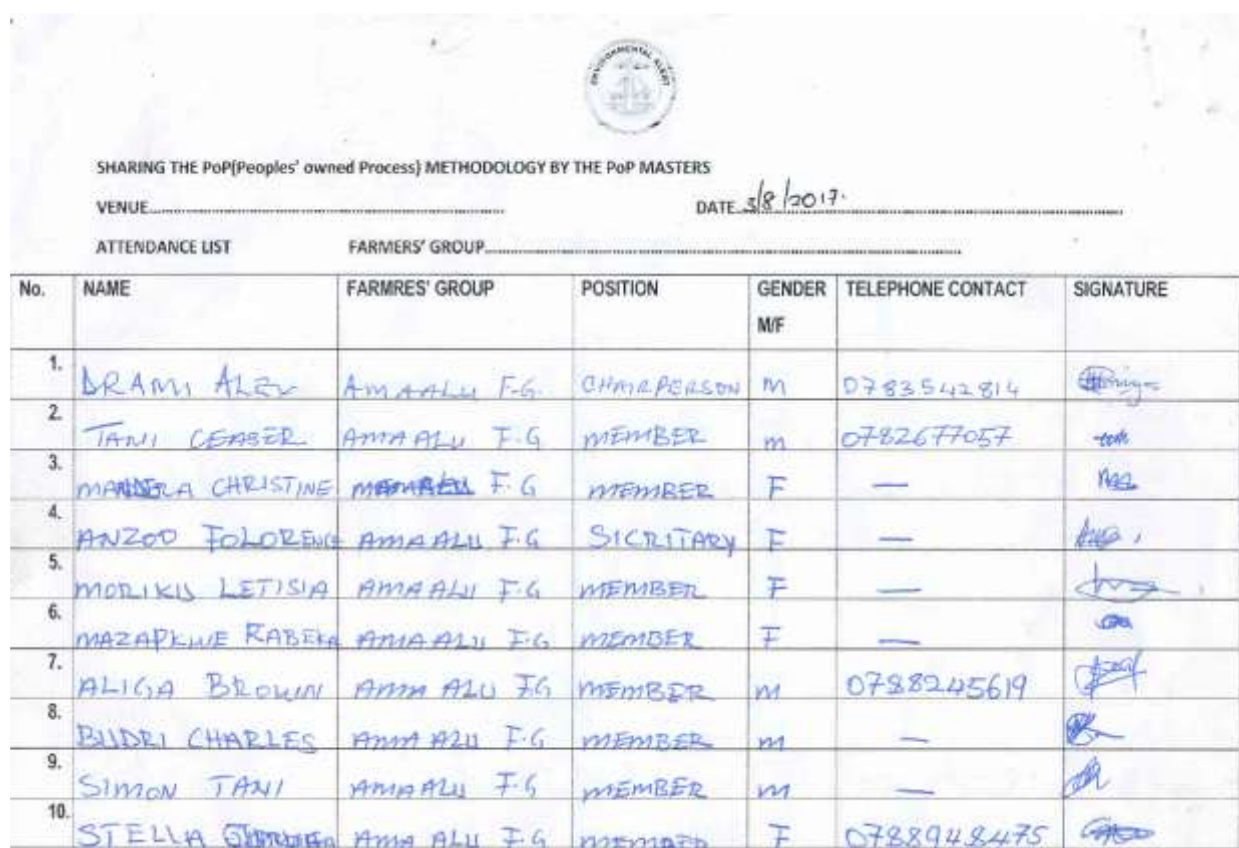 ENVIRONMENTAL ALERT
SHARING THE PoP(Peoples' owned Process) METHODOLOGY BY THE PoP MASTERS
VENUE DATE 3/8/2017.
ATTENDANCE LIST FARMERS' GROUP
No. NAME FARMRES' GROUP POSITION GENDER M/F TELEPHONE CONTACT SIGNATURE
1. DRAMI ALEX AMAALU F.G. CHAIRPERSON M 0783542814
2. TANI CEASER AMAALU F.G MEMBER M 0782677057
3. CHRISTINE F.G MEMBER F —
4. ANZOO FOLORENCE AMAALU F.G SICRITARY F —
5. MORIKU LETISIA AMAALU F.G MEMBER F —
6. RABEKA AMAALU F.G MEMBER F —
7. ALIGA BROWN AMA ALU F.G MEMBER M 0788245619
8. BUDRI CHARLES AMA ALU F.G MEMBER M —
9. SIMON TANI AMA ALU F.G MEMBER M —
10. STELLA AMA ALU F.G MEMBER F 0788948475